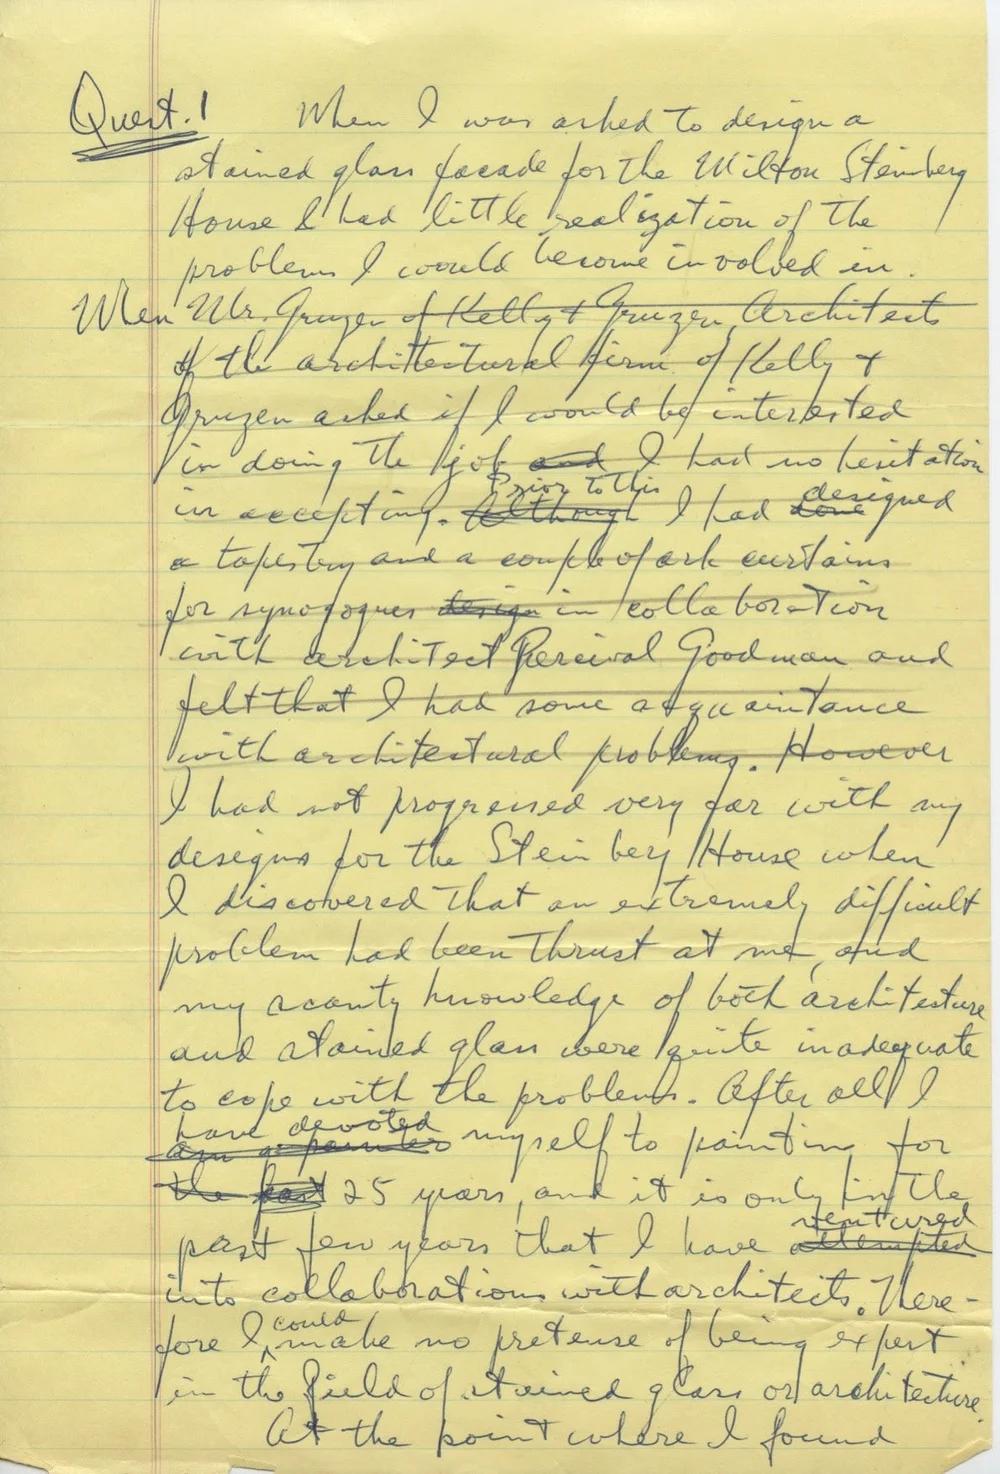 Quest. 1 When I was asked to design a
stained glass facade for the Milton Steinberg
House I had little realization of the
problems I would become involved in.
When Mr. Gruzen of Kelly & Gruzen, Architects
of the architectural firm of Kelly &
Gruzen asked if I would be interested
in doing the job and I had no hesitation
Prior to this designed
in accepting. Although I had done
a tapestry and a couple of ark curtains
for synagogues design in collaboration
with architect Percival Goodman and
felt that I had some acquaintance
with architectural problems. However
I had not progressed very far with my
designs for the Steinberg House when
I discovered that an extremely difficult
problem had been thrust at me, and
my scanty knowledge of both architecture
and stained glass were quite inadequate
to cope with the problems. After all I
have devoted
am a painter myself to painting for
the past 25 years, and it is only in the
ventured
past few years that I have attempted
into collaborations with architects. There-
could
fore I make no pretense of being expert
in the field of stained glass or architecture.
At the point where I found